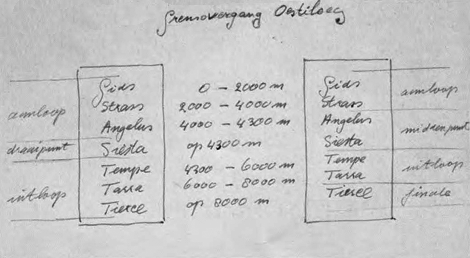 Grensovergang
Gids 0 - 2000 m Gids aanloop
Strass 2000 - 4000 m Strass
aanloop Angelus 4000 - 4300 m Angelus middenpunt
draaipunt Siesta op 4300 m Siesta
Tempe 4300 - 6000 m Tempe uitloop
Tassa 6000 - 8000 m Tassa
uitloop Tierce op 8000 m Tierce finale